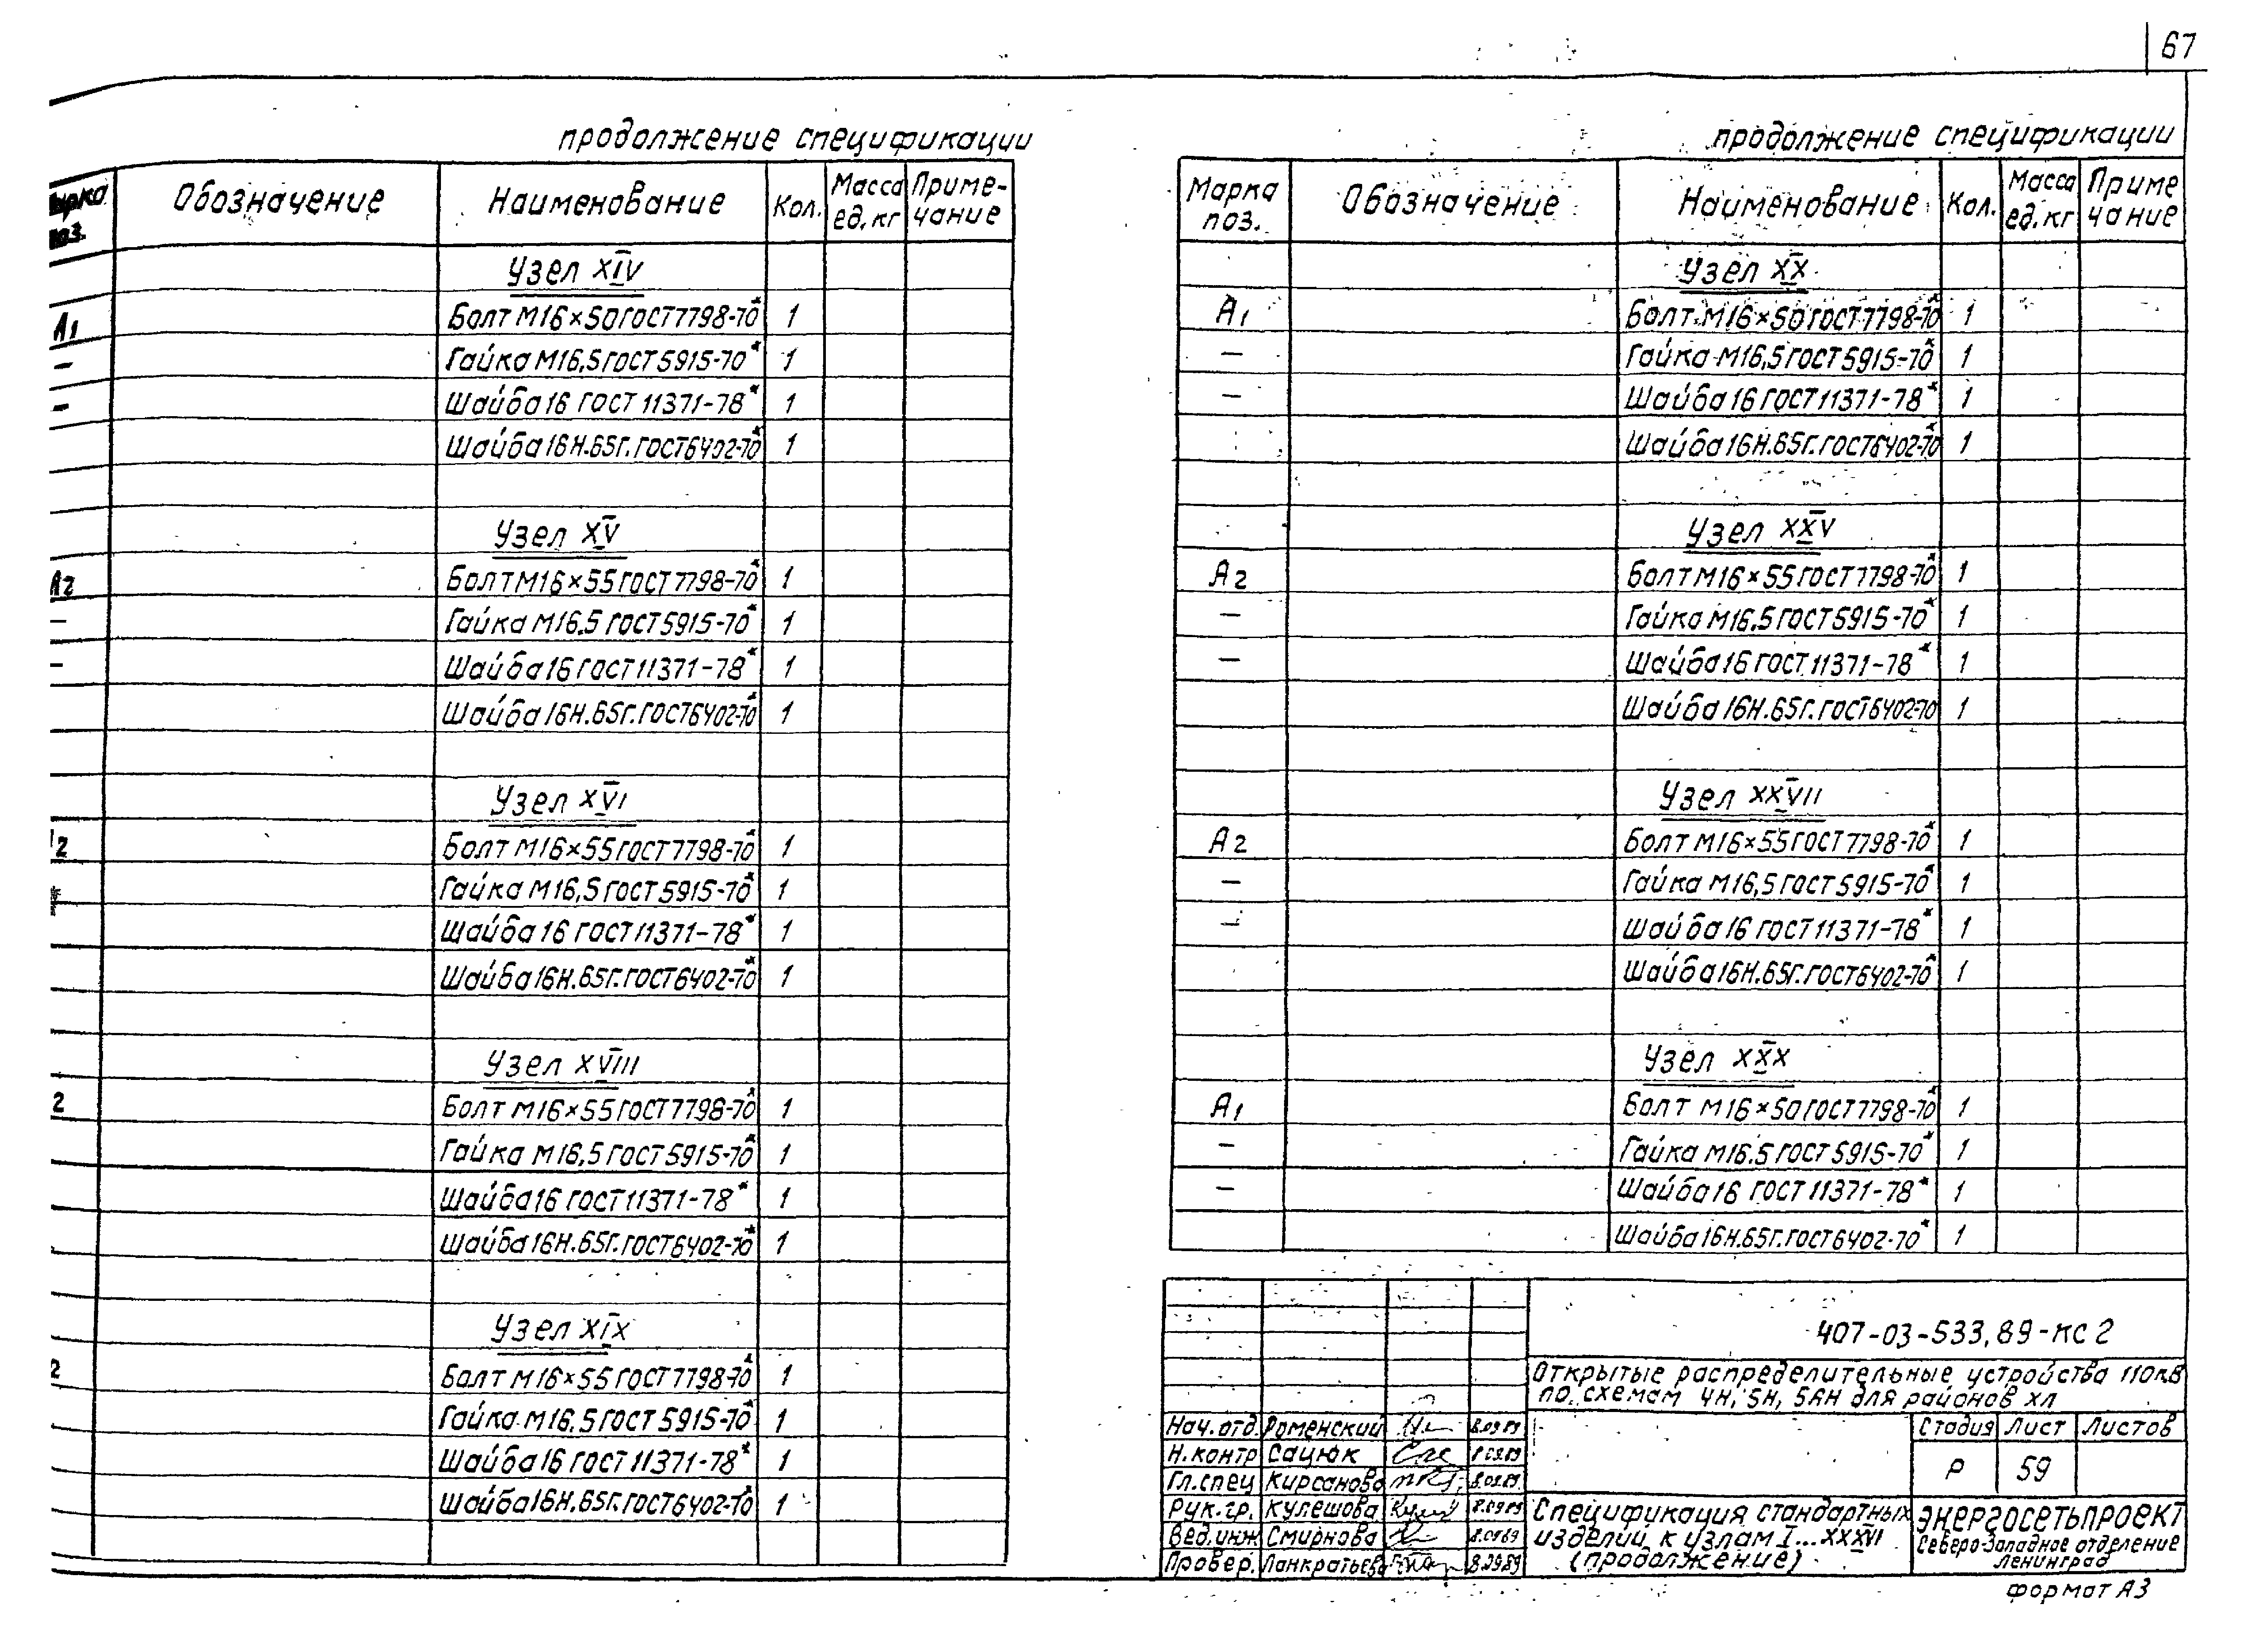 67
продолжение спецификации
Марка поз. Обозначение Наименование Кол. Масса ед. кг Приме-чание
Узел XIV
А1 Болт М16×50 ГОСТ 7798-70* 1
— Гайка М16,5 ГОСТ 5915-70* 1
— Шайба 16 ГОСТ 11371-78* 1
Шайба 16Н.65Г. ГОСТ 6402-70* 1
Узел XV
А2 Болт М16×55 ГОСТ 7798-70* 1
— Гайка М16.5 ГОСТ 5915-70* 1
— Шайба 16 ГОСТ 11371-78* 1
Шайба 16Н.65Г. ГОСТ 6402-70* 1
Узел XVI
2 Болт М16×55 ГОСТ 7798-70* 1
Гайка М16,5 ГОСТ 5915-70* 1
Шайба 16 ГОСТ 11371-78* 1
Шайба 16Н.65Г. ГОСТ 6402-70* 1
Узел XVIII
2 Болт М16×55 ГОСТ 7798-70* 1
Гайка М16,5 ГОСТ 5915-70* 1
Шайба 16 ГОСТ 11371-78* 1
Шайба 16Н.65Г. ГОСТ 6402-70* 1
Узел XIX
2 Болт М16×55 ГОСТ 7798-70* 1
Гайка М16,5 ГОСТ 5915-70* 1
Шайба 16 ГОСТ 11371-78* 1
Шайба 16Н.65Г. ГОСТ 6402-70* 1
продолжение спецификации
Марка поз. Обозначение Наименование Кол. Масса ед. кг Приме чание
Узел XX
А1 Болт М16×50 ГОСТ 7798-70* 1
— Гайка М16,5 ГОСТ 5915-70* 1
— Шайба 16 ГОСТ 11371-78* 1
Шайба 16Н.65Г. ГОСТ 6402-70* 1
Узел XXV
А2 Болт М16×55 ГОСТ 7798-70* 1
— Гайка М16.5 ГОСТ 5915-70* 1
— Шайба 16 ГОСТ 11371-78* 1
Шайба 16Н.65Г. ГОСТ 6402-70 1
Узел XXVII
А2 Болт М16×55 ГОСТ 7798-70* 1
— Гайка М16,5 ГОСТ 5915-70* 1
— Шайба 16 ГОСТ 11371-78* 1
Шайба 16Н.65Г. ГОСТ 6402-70* 1
Узел XXX
А1 Болт М16×50 ГОСТ 7798-70* 1
— Гайка М16.5 ГОСТ 5915-70* 1
— Шайба 16 ГОСТ 11371-78* 1
Шайба 16Н.65Г. ГОСТ 6402-70* 1
407-03-533.89-КС2
Открытые распределительные устройства 110кВ
по схемам 4Н, 5Н, 5АН для районов ХЛ
Нач.отд. Роменский 8.09.89
Н.контр Сацюк 8.09.89
Гл.спец Кирсанова 8.09.89
Рук.гр. Кулешова 8.09.89
Вед.инж Смирнова 8.09.89
Провер. Панкратьева 8.09.89
Стадия Лист Листов
Р 59
Спецификация стандартных
изделий к узлам I...XXXVI
(продолжение)
ЭНЕРГОСЕТЬПРОЕКТ
Северо-Западное отделение
Ленинград
формат А3